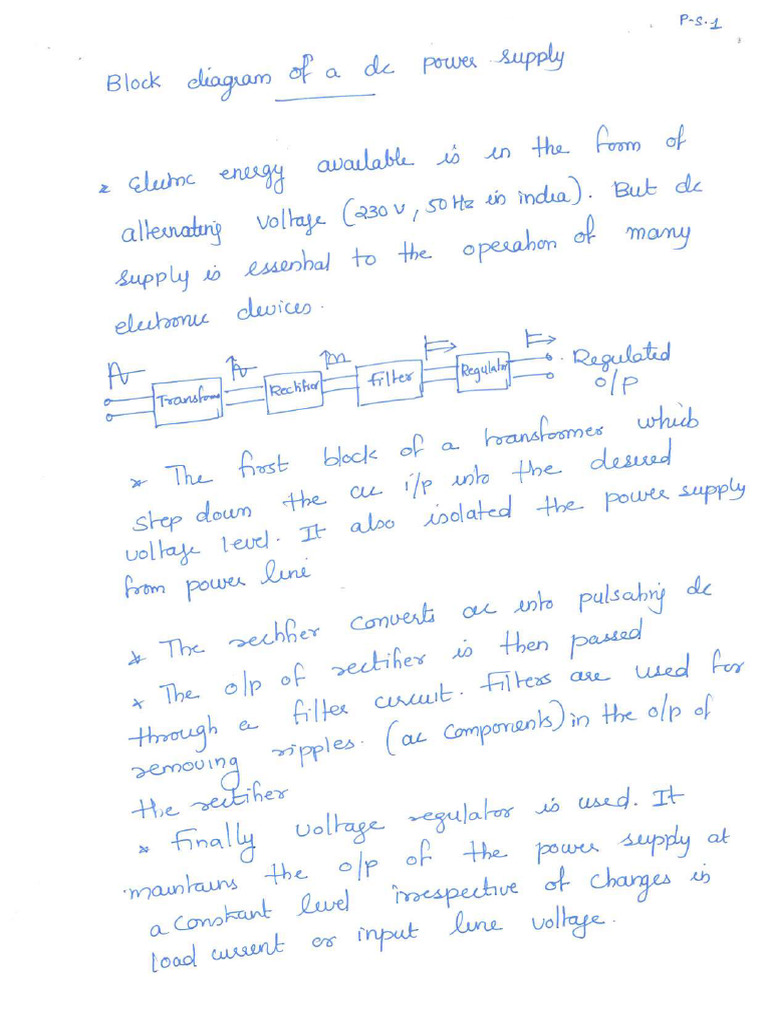 P-S-1
Block diagram of a dc power supply
* Electric energy available is in the form of
alternating voltage (230 V, 50 Hz in india). But dc
supply is essential to the operation of many
electronic devices.
Transfom Rectifier Filter Regulator Regulated
o/p
* The first block of a transformer which
step down the ac i/p into the desired
voltage level. It also isolated the power supply
from power line
* The rectifier converts ac into pulsating dc
* The o/p of rectifier is then passed
through a filter circuit. Filters are used for
removing ripples. (ac components) in the o/p of
the rectifier
* Finally voltage regulator is used. It
maintains the o/p of the power supply at
a constant level irrespective of changes in
load current or input line voltage.